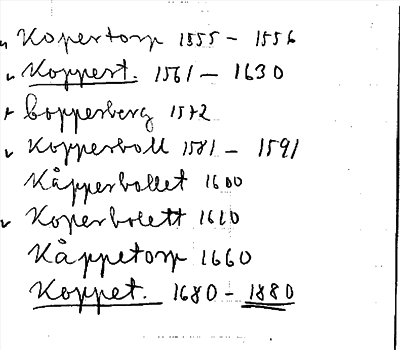 Kopertorp 1555 - 1556
Koppert. 1561 - 1630
Copperberg 1572
Kopperboll 1581 - 1591
Kåpperbollet 1600
Koperbolett 1610
Kåppetorp 1660
Koppet. 1680 - 1880